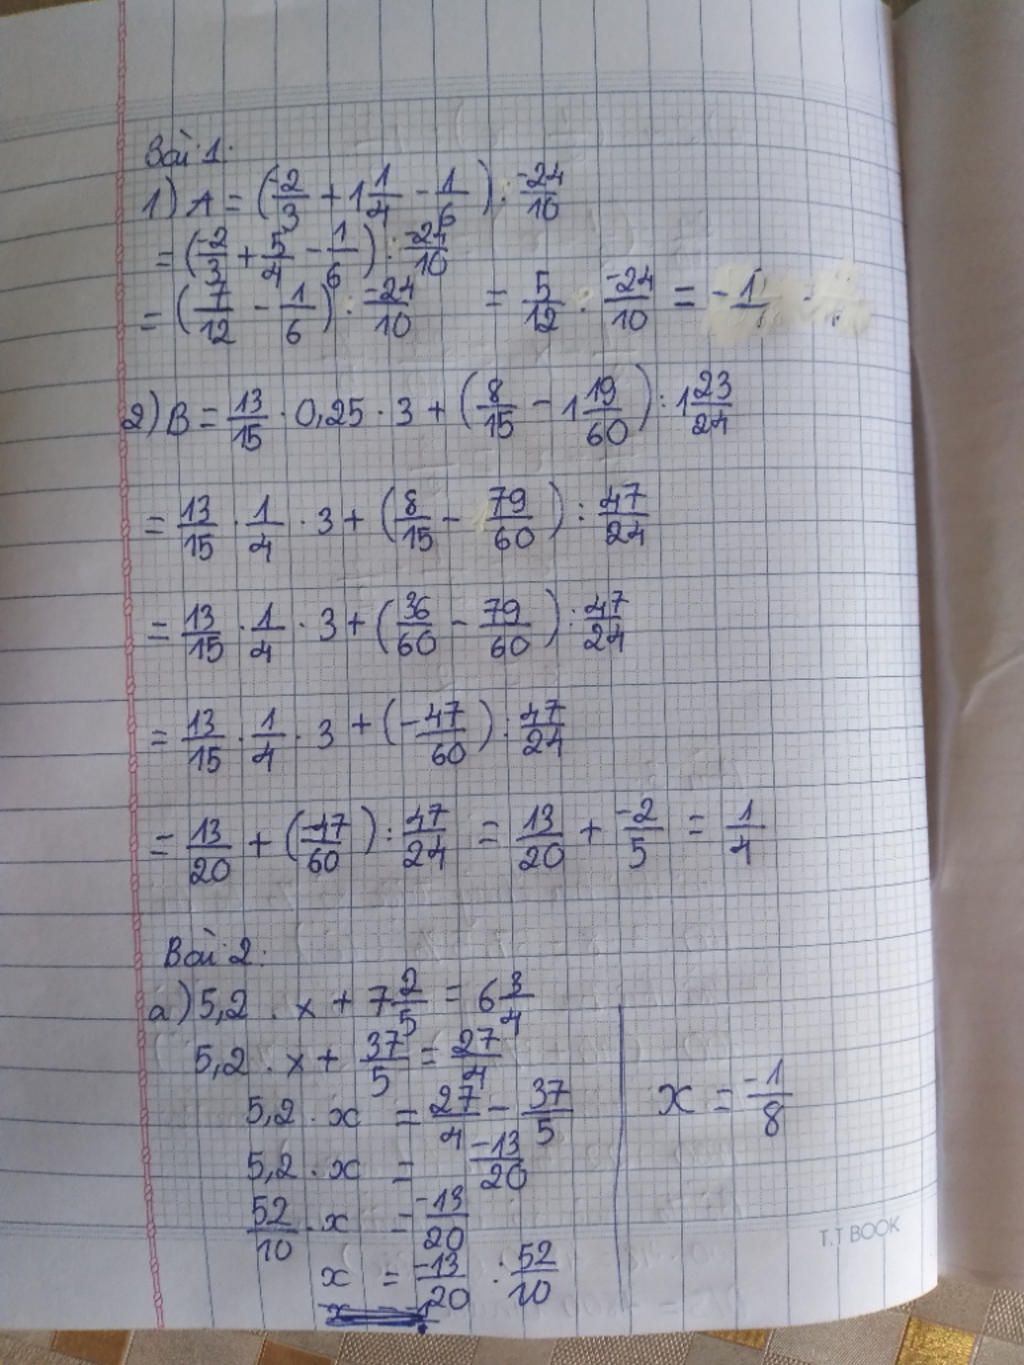 Bài 1:
1) A = (-2/3 + 1 1/4 - 1/6) : -24/10
= (-2/3 + 5/4 - 1/6) : -24/10
= (7/12 - 1/6) : -24/10 = 5/12 : -24/10 = -1/
2) B = 13/15 · 0,25 · 3 + (8/15 - 1 19/60) : 1 23/24
= 13/15 · 1/4 · 3 + (8/15 - 79/60) : 47/24
= 13/15 · 1/4 · 3 + (36/60 - 79/60) : 47/24
= 13/15 · 1/4 · 3 + (-47/60) : 47/24
= 13/20 + (-47/60) : 47/24 = 13/20 + -2/5 = 1/4
Bài 2:
a) 5,2 · x + 7 2/5 = 6 3/4
5,2 · x + 37/5 = 27/4
5,2 · x = 27/4 - 37/5
5,2 · x = -13/20
52/10 · x = -13/20
x = -13/20 : 52/10
x = -1/8
T.T BOOK